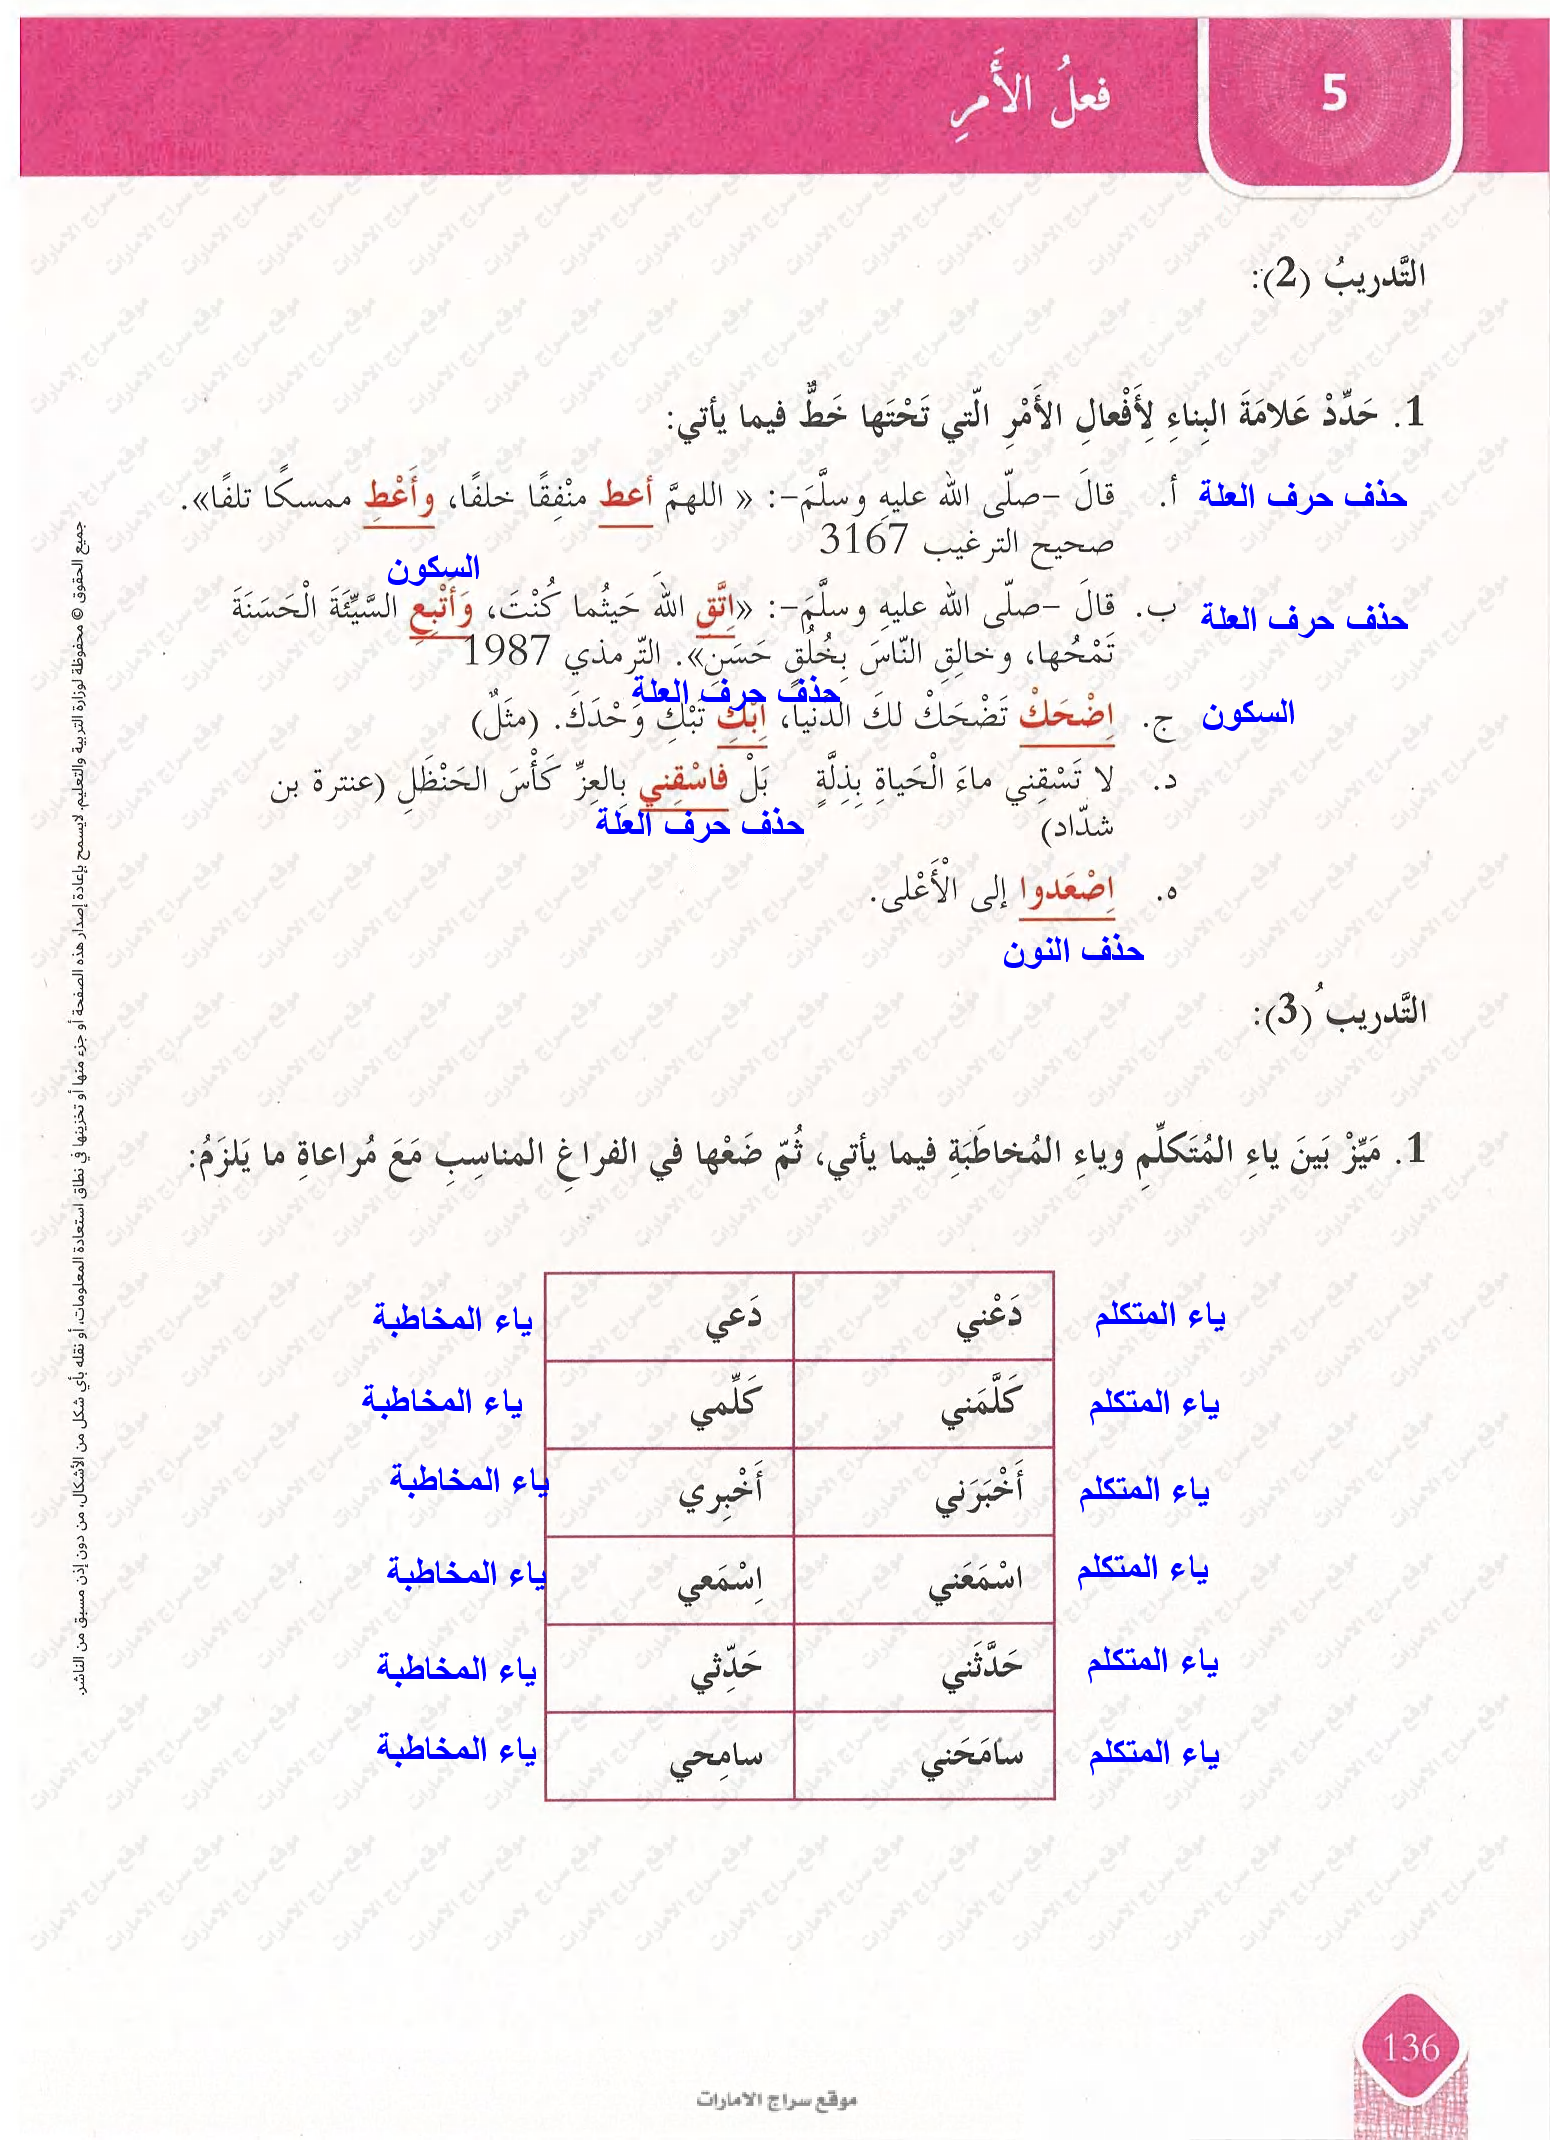 5
فعلُ الأَمرِ
التَّدريبُ (2):
1. حَدِّدْ عَلامَةَ البِناءِ لِأَفْعالِ الأَمْرِ الّتي تَحْتَها خَطٌّ فيما يأتي:
حذف حرف العلة
أ. قالَ -صلّى الله عليهِ وسلَّمَ-: « اللهمَّ أعط منْفِقًا خلفًا، وأَعْطِ ممسكًا تلفًا».
صحيح الترغيب 3167
السكون
حذف حرف العلة
ب. قالَ -صلّى الله عليهِ وسلَّمَ-: «اِتَّقِ اللهَ حَيثُما كُنْتَ، وَأَتْبِعِ السَّيِّئَةَ الْحَسَنَةَ
تَمْحُها، وخالِقِ النّاسَ بِخُلُقٍ حَسَنٍ». التّرمذي 1987
حذف حرف العلة
السكون
ج. اِضْحَكْ تَضْحَكْ لكَ الدّنيا، اِبْكِ تَبْكِ وَحْدَكَ. (مثَلٌ)
د. لا تَسْقِني ماءَ الْحَياةِ بِذِلَّةٍ بَلْ فاسْقِني بِالعِزِّ كَأْسَ الحَنْظَلِ (عنترة بن
شدّاد)
حذف حرف العلة
ه. اِصْعَدوا إلى الْأَعْلى.
حذف النون
التَّدريبُ (3):
1. مَيِّزْ بَينَ ياءِ المُتَكلِّمِ وياءِ المُخاطَبَةِ فيما يأتي، ثُمّ ضَعْها في الفراغِ المناسِبِ مَعَ مُراعاةِ ما يَلزَمُ:
ياء المتكلم دَعْني دَعي ياء المخاطبة
ياء المتكلم كَلَّمَني كَلِّمي ياء المخاطبة
ياء المتكلم أَخْبَرَني أَخْبِري ياء المخاطبة
ياء المتكلم اسْمَعَني اِسْمَعي ياء المخاطبة
ياء المتكلم حَدَّثَني حَدِّثي ياء المخاطبة
ياء المتكلم سامَحَني سامِحي ياء المخاطبة
جميع الحقوق © محفوظة لوزارة التربية والتعليم. لايسمح بإعادة إصدار هذه الصفحة أو جزء منها أو تخزينها في نطاق استعادة المعلومات، أو نقله بأي شكل من الأشكال، من دون إذن مسبق من الناشر.
136
موقع سراج الامارات